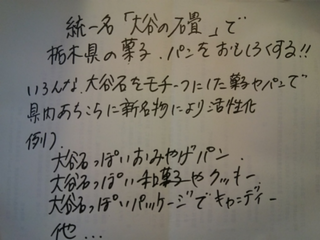 統一名「大谷の石畳」で
栃木県の菓子、パンをおもしろくする!!
いろんな、大谷石をモチーフにした菓子やパンで
県内あちこちに新名物により活性化
例)
大谷石っぽいおみやげパン
大谷石っぽい和菓子やクッキー
大谷石っぽいパッケージでキャンディー
他...